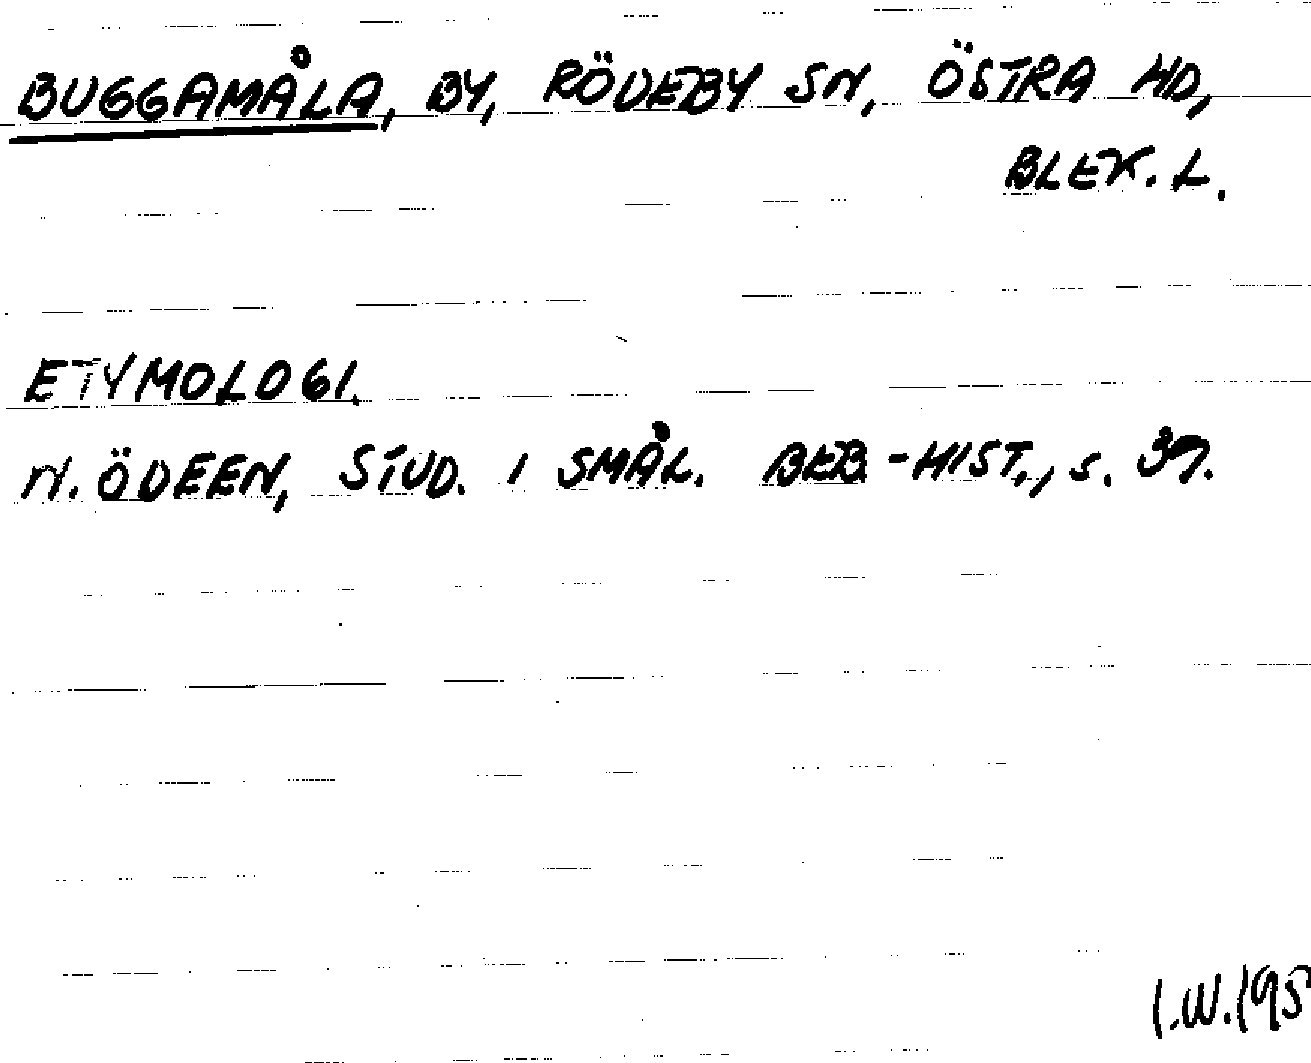 BUGGAMÅLA, BY, RÖDEBY SN, ÖSTRA HD,
BLEK. L.
ETYMOLOGI.
N. ÖDEEN, STUD. I SMÅL. BEB.-HIST., s. 37.
I.W. 195